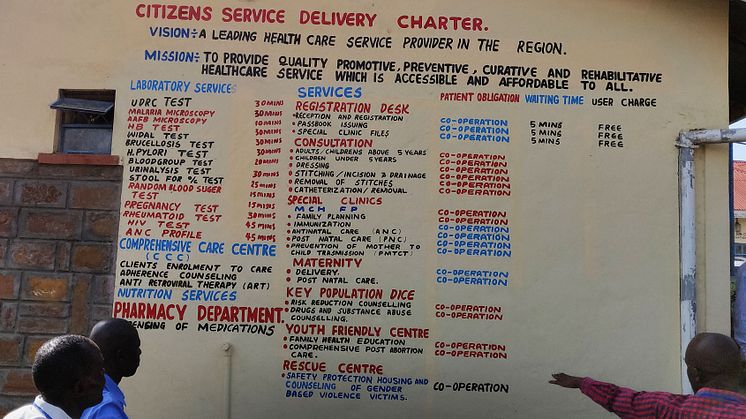 CITIZENS SERVICE DELIVERY CHARTER.
VISION÷ A LEADING HEALTH CARE SERVICE PROVIDER IN THE REGION.
MISSION÷ TO PROVIDE QUALITY PROMOTIVE, PREVENTIVE, CURATIVE AND REHABILITATIVE
HEALTHCARE SERVICE WHICH IS ACCESSIBLE AND AFFORDABLE TO ALL.
LABORATORY SERVICES
UDRC TEST 30MINS
MALARIA MICROSCOPY 30MINS
AAFB MICROSCOPY 10MINS
HB TEST 30MINS
WIDAL TEST 30MINS
BRUCELLOSIS TEST 30MINS
H.PYLORI TEST 30MINS
BLOODGROUP TEST 20MINS
URINALYSIS TEST 30MINS
STOOL FOR TEST 25MINS
RANDOM BLOOD SUGER
TEST 15MINS
PREGNANCY TEST 15MINS
RHEUMATOID TEST 30MINS
HIV TEST 45MINS
ANC PROFILE 45MINS
COMPREHENSIVE CARE CENTRE
(CCC)
CLIENTS ENROLMENT TO CARE
ADHERENCE COUNSELING
ANTI RETROVIRAL THERAPY (ART)
NUTRITION SERVICES
PHARMACY DEPARTMENT
OF MEDICATIONS
SERVICES PATIENT OBLIGATION WAITING TIME USER CHARGE
REGISTRATION DESK
• RECEPTION AND REGISTRATION CO-OPERATION 5 MINS FREE
• PASSBOOK ISSUING CO-OPERATION 5 MINS FREE
• SPECIAL CLINIC FILES CO-OPERATION 5 MINS FREE
CONSULTATION
• ADULTS/CHILDRENS ABOVE 5 YEARS CO-OPERATION
• CHILDREN UNDER 5 YEARS CO-OPERATION
• DRESSING CO-OPERATION
• STITCHING/INCISION & DRAINAGE CO-OPERATION
• REMOVAL OF STITCHES CO-OPERATION
CATHETERIZATION/REMOVAL CO-OPERATION
SPECIAL CLINICS
MCH FP
• FAMILY PLANNING CO-OPERATION
• IMMUNIZATION CO-OPERATION
• ANTINATAL CARE (ANC) CO-OPERATION
• POST NATAL CARE (PNC) CO-OPERATION
• PREVENTION OF MOTHER TO CO-OPERATION
CHILD TRASMISSION (PMTCT) CO-OPERATION
MATERNITY
• DELIVERY. CO-OPERATION
• POST NATAL CARE. CO-OPERATION
KEY POPULATION DICE
• RISK REDUCTION COUNSELLING CO-OPERATION
• DRUGS AND SUBSTANCE ABUSE CO-OPERATION
COUNSELLING.
YOUTH FRIENDLY CENTRE
• FAMILY HEALTH EDUCATION CO-OPERATION
• COMPREHENSIVE POST ABORTION CO-OPERATION
CARE.
RESCUE CENTRE
• SAFETY PROTECTION HOUSING AND
COUNSELING OF GENDER CO-OPERATION
BASED VIOLENCE VICTIMS.